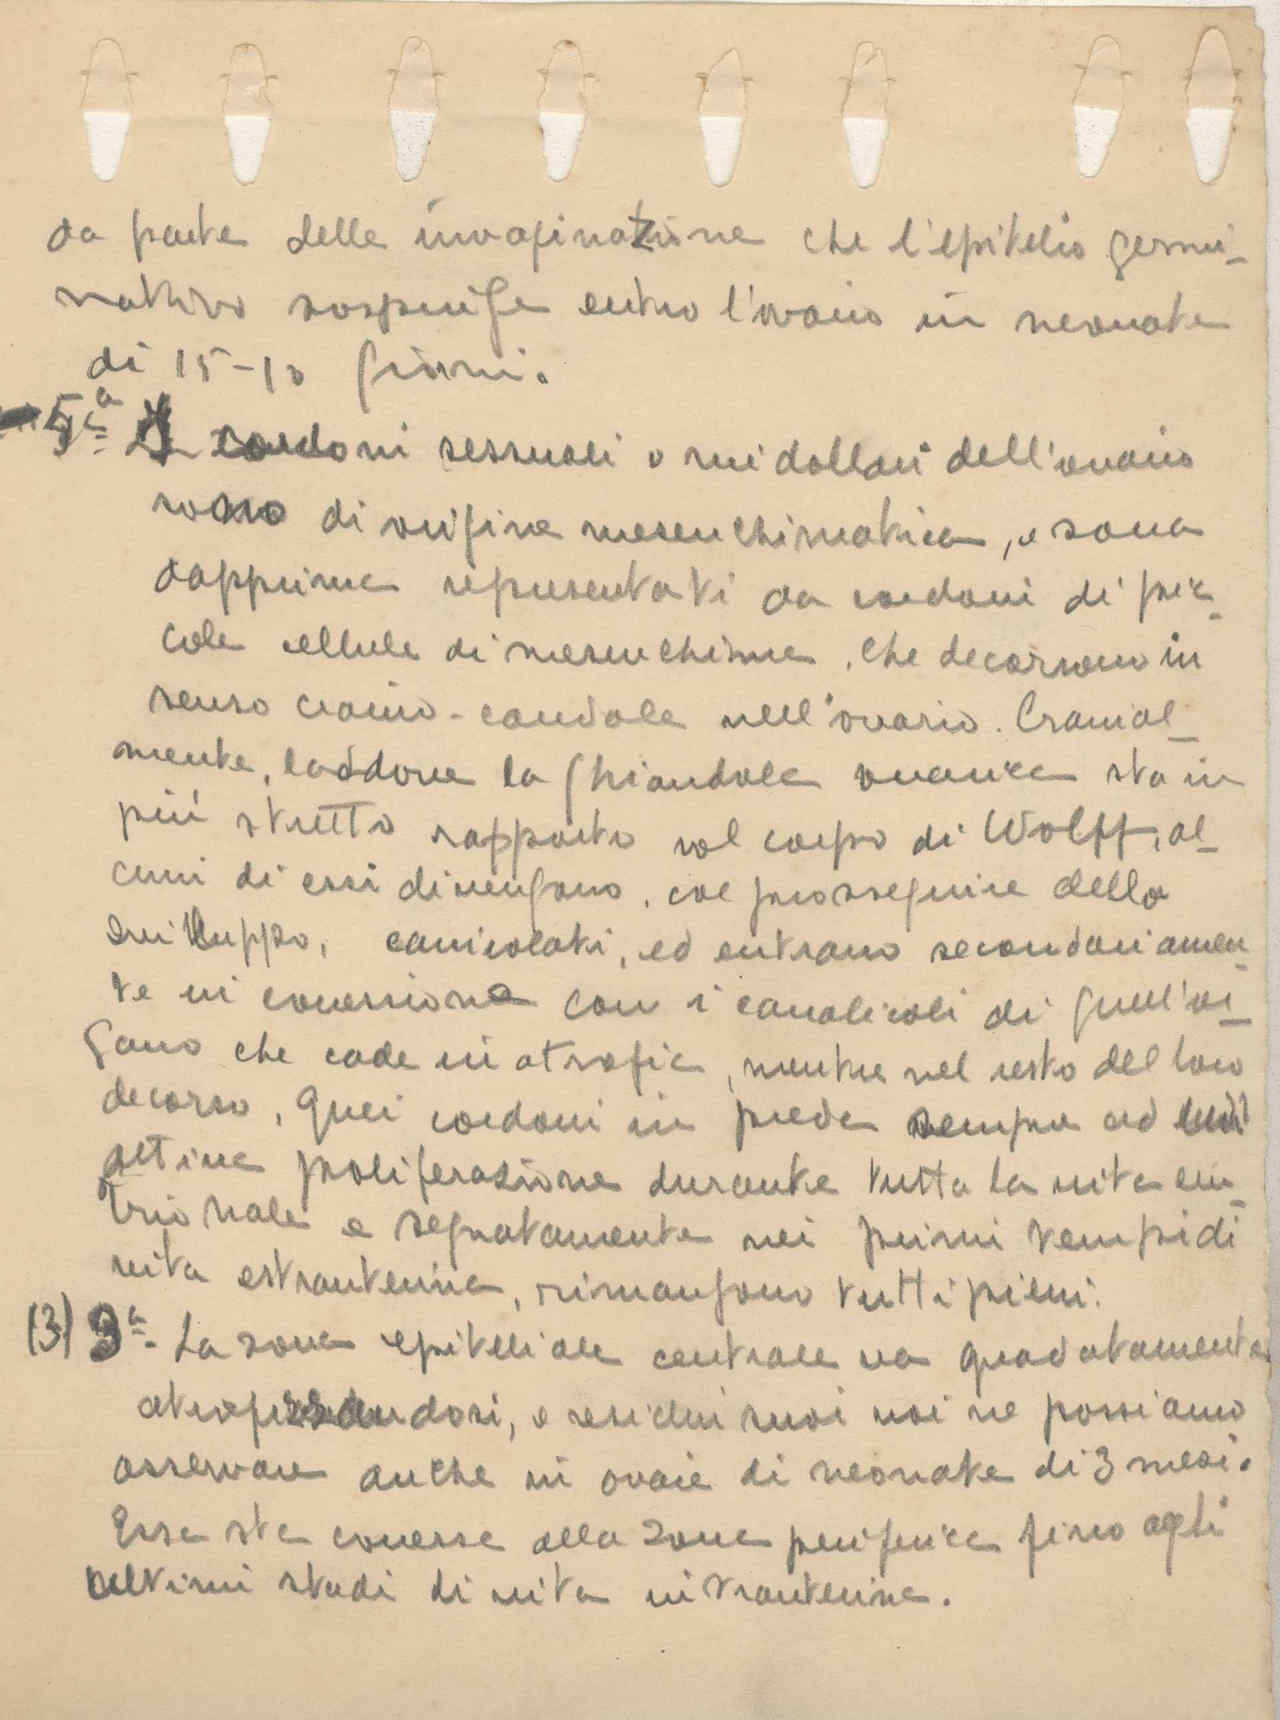 da parte delle invaginazione che l'epitelio germi-
nativo sospinge entro l'ovaio in neonate
di 15-10 giorni.
5ª I cordoni sessuali o midollari dell'ovaio
sono di origine mesenchimatica, e sono
dapprima represent​ati da cordoni di pic-
cole cellule di mesenchima, che decorrono in
senso cranio-caudale nell'ovario. Cranial-
mente, laddove la ghiandola ovarica sta in
più stretto rapporto col corpo di Wolff, al-
cuni di essi divengono, col proseguire dello
sviluppo, canicolati, ed entrano secondariamen-
te in conessione con i canalicoli di quell'or-
gano che cade in atrofia, mentre nel resto del loro
decorso, quei cordoni in preda sempre ad
attiva proliferazione durante tutta la vita em-
brionale e segnatamente nei primi tempi di
vita estrauterina, rimangono tutti pieni.
(3) 3ª- La zona epiteliale centrale va gradatamente
atrofizzandosi, e residui suoi noi ne possiamo
osservare anche in ovaie di neonate di 3 mesi.
Essa sta conessa alla zona periferica fino agli
ultimi stadi di vita intrauterina.